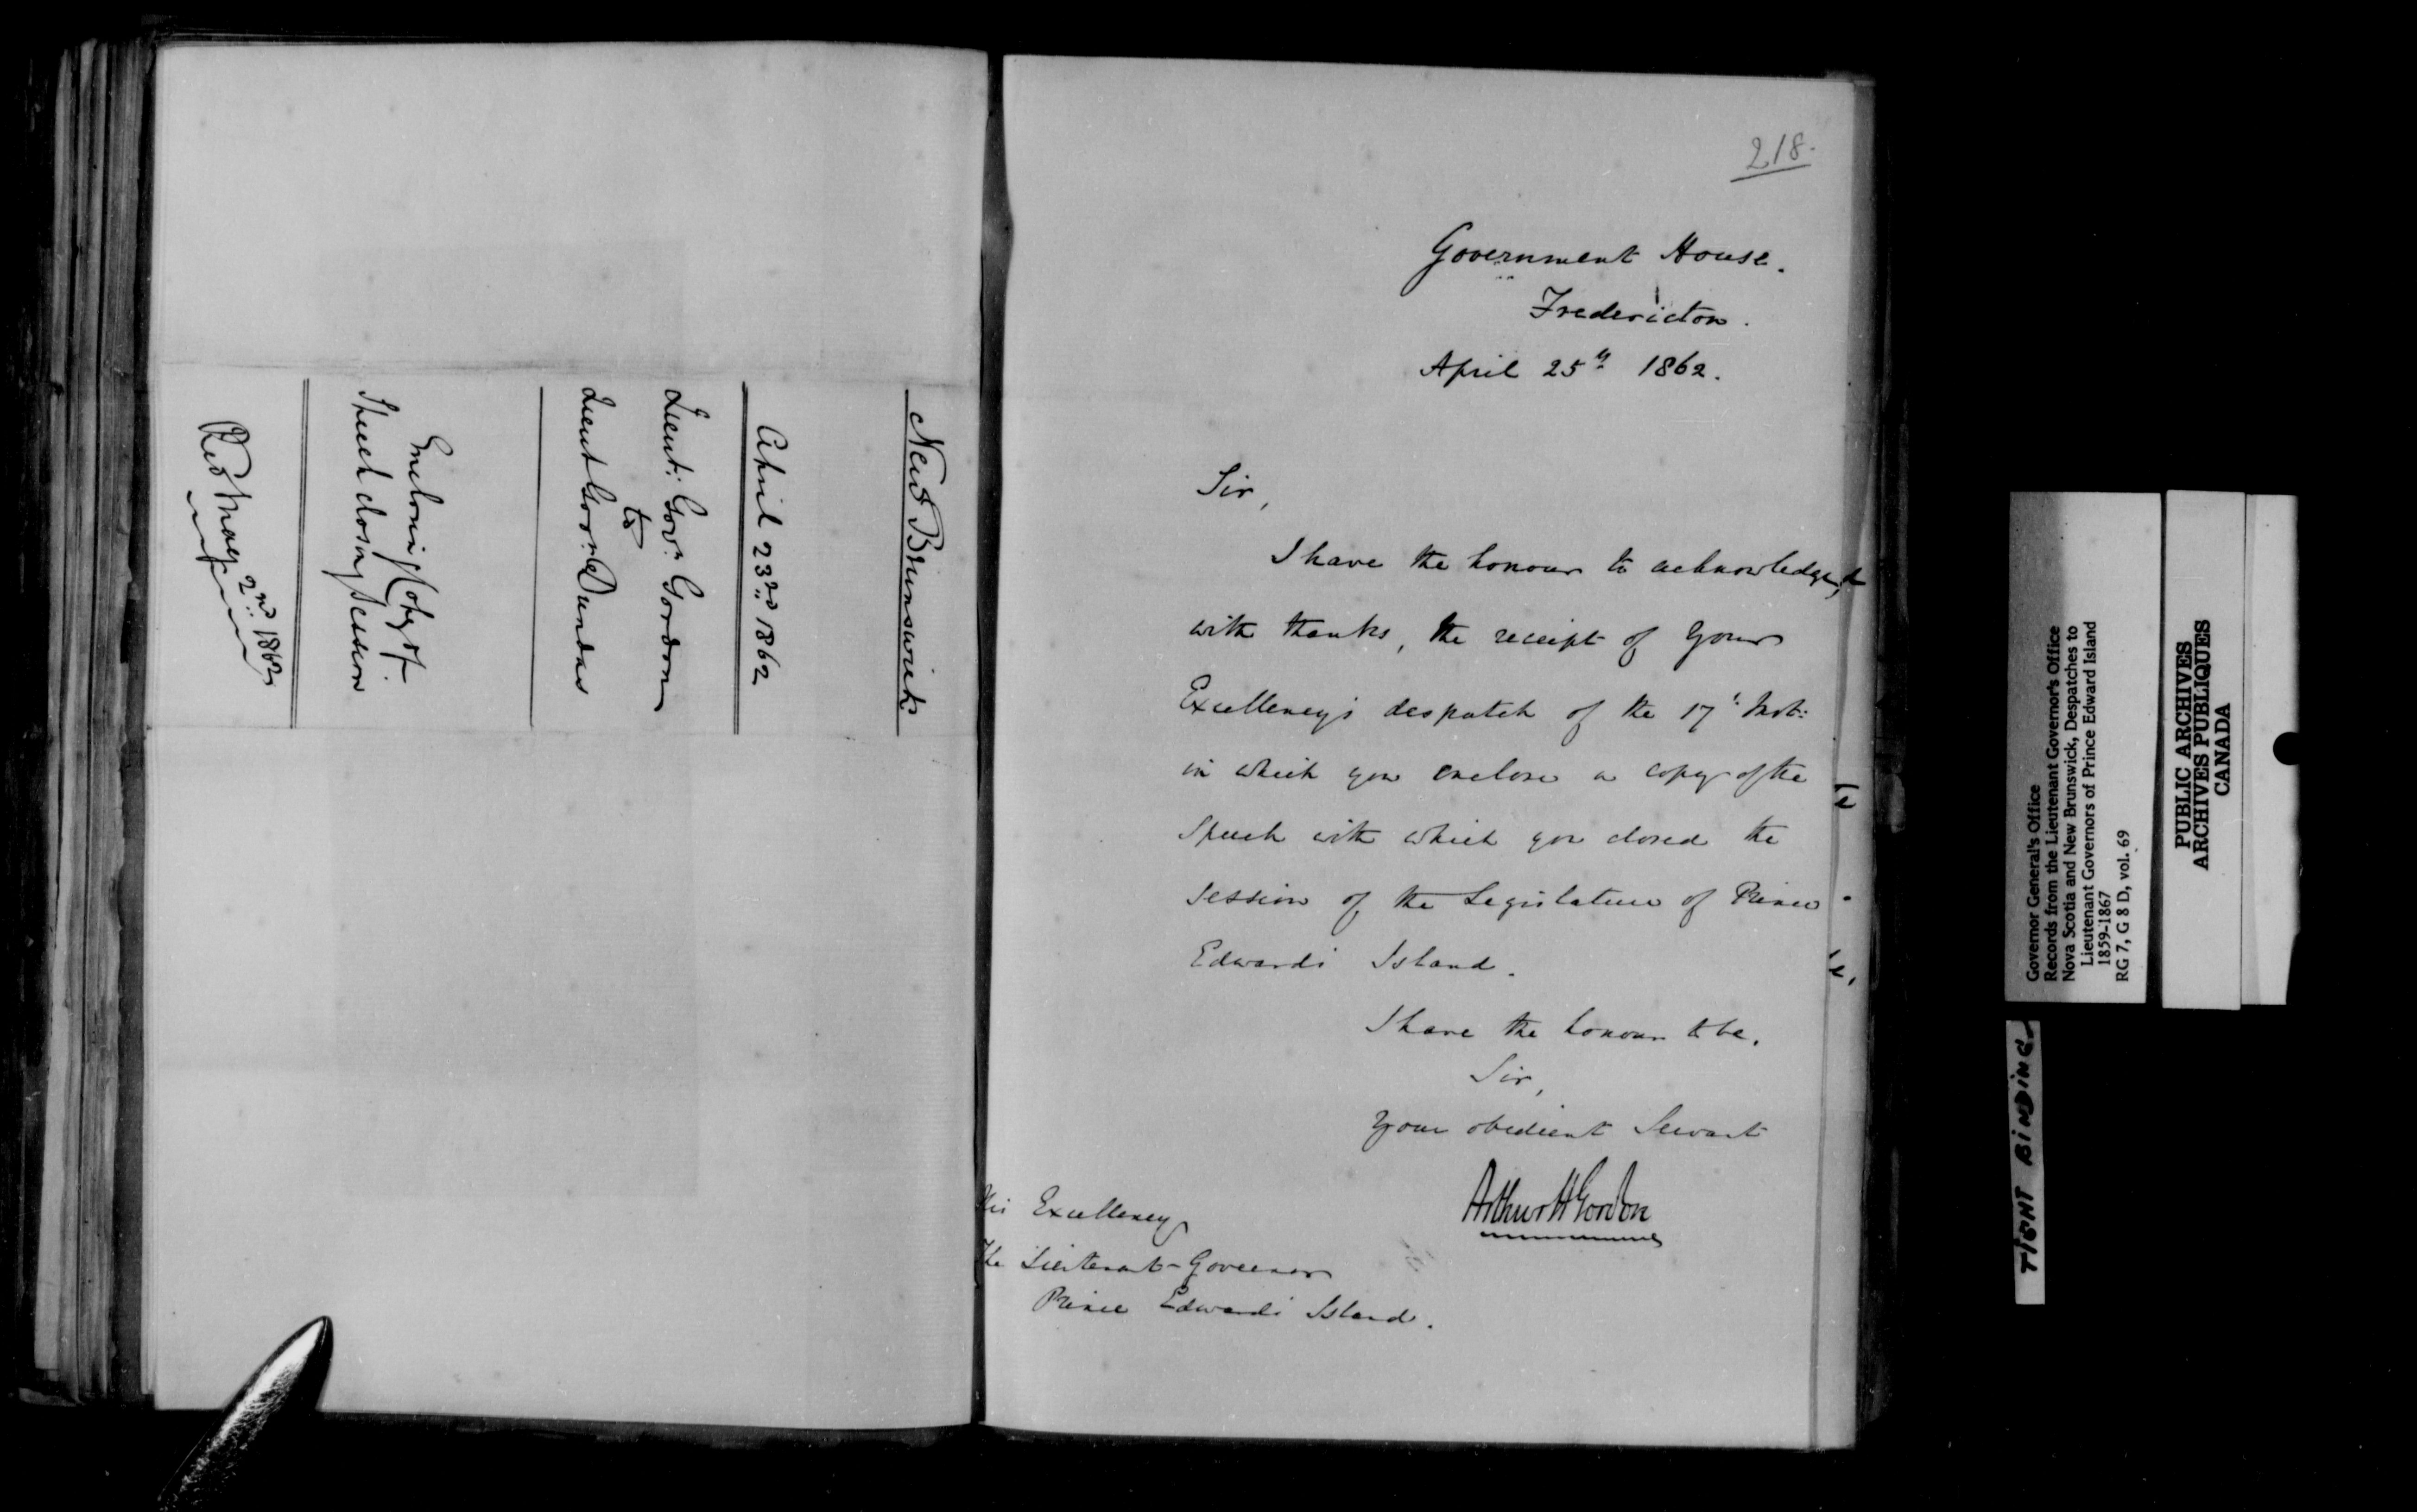 New Brunswick
April 23rd 1862
Lieut: Govr. Gordon
to
Lieut Govr. Dundas
Enclosing Copy of
Speech closing Session
Recd May 2nd 1862
218.
Government House.
Fredericton.
April 25th 1862.
Sir,
I have the honour to acknowledge,
with thanks, the receipt of Your
Excellency's despatch of the 17th Inst:
in which you enclose a copy of the
Speech with which you closed the
Session of the Legislature of Prince
Edwards Island.
I have the honour to be,
Sir,
Your obedient Servant
Arthur H Gordon
His Excellency
The Lieutenant-Governor
Prince Edwards Island.
Governor General's Office
Records from the Lieutenant Governor's Office
Nova Scotia and New Brunswick, Despatches to
Lieutenant Governors of Prince Edward Island
1859-1867
RG 7, G 8 D, vol. 69
PUBLIC ARCHIVES
ARCHIVES PUBLIQUES
CANADA
TIGHT BINDING